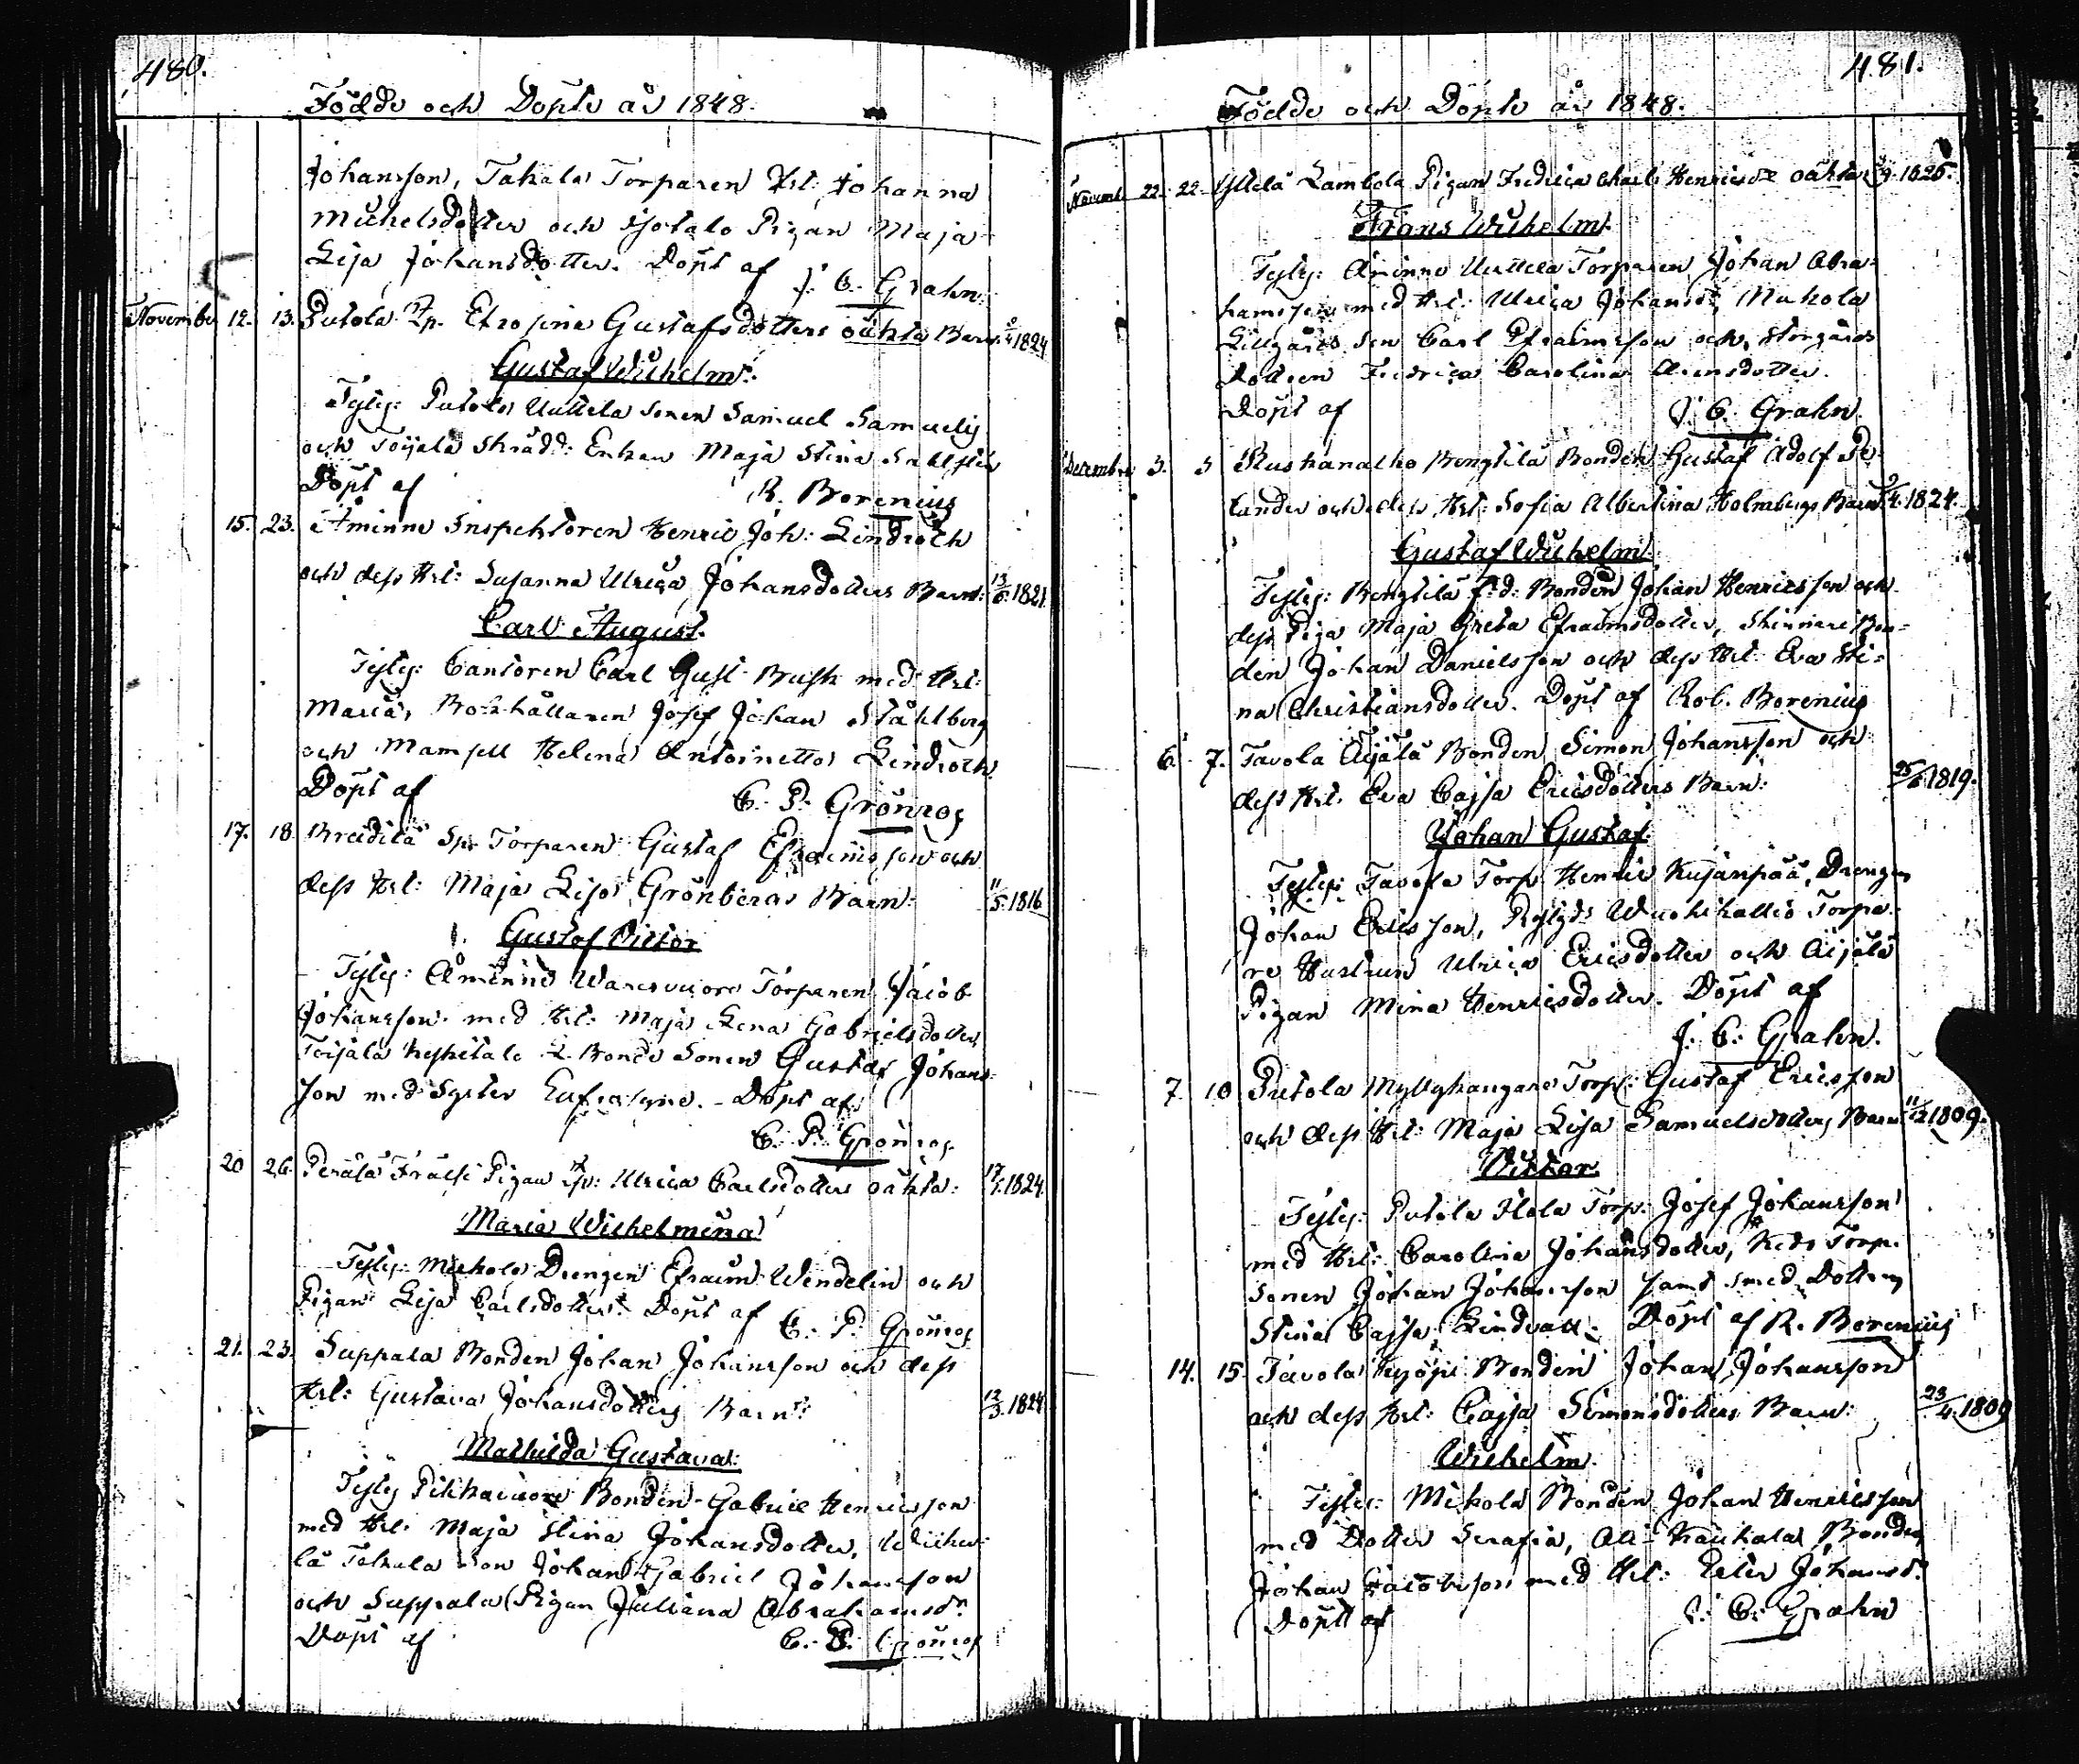 480.
Födde och Döpte år 1848.
Johansson, Takala Torparen Hst: Johanna
Michelsdotter och Isotalo Pigan Maja
Lisa Johansdotter. Döpt af J. C. Grahn.
November 12. 13. Putola Qp. Efrosina Gustafsdotters oächta Barn: 1824
Gustaf Wilhelm.
Testes: Putola Uuttela Sonen Samuel Samuels
och Toijala Skrädd: Enkan Maja Stina
Döpt af R. Borenius
15. 23. Åminne Inspektoren Henric Joh: Lindroth
och dess Hst: Susanna Ulrica Johansdotters Barn: 13/6. 1821.
Carl August.
Testes: Cantoren Carl Gust. Bush med Hst:
Maria, Bokhållaren Josef Johan Ståhlberg
och Mamsell Helena Antoinetta Lindroth
Döpt af C. P. Grönros
17. 18. Breidilä Spr Torparen Gustaf Efraimsson och
dess Hst: Maja Lisa Grönbergs Barn: 11/5. 1816
Gustaf Victor
Testes: Åminne Waresvuore Torparen Jacob
Johansson med Hst: Maja Lena Gabrielsdotter
Toijala Bonde Sonen Gustaf Johans-
son med Syster Eufrosyne. - Döpt af
C. P. Grönros
20 26. Perälä Frälse Pigan Qp: Ulrica Carlsdotters oächta: 17/ 1824.
Maria Wilhelmina
Testes: Mukola Drengen Efraim Wendelin och
Pigan Lisa Carlsdotter: Döpt af C. P. Grönros
21. 23. Suppala Bonden Johan Johansson och dess
Hst: Gustava Johansdotters Barn: 13/3. 1824
Mathilda Gustava:
Testes Pitkäwuore Bonden Gabriel Henricsson
med Hst: Maja Stina Johansdotter,
lä Takala Son Johan Gabriel Johansson
och Suppala Pigan Juliana Abrahamsdr
Döpt af C. P. Grönros
481.
Födde och Döpte år 1848.
Novemb: 22. 22. Yltelä Lambola Pigan Fredrica Charl: Henricsdr oächta 1825.
Frans Wilhelm.
Testes: Åminne Uuttela Torparen Johan Abra-
hamsson med Hst: Ulrica Johansdr, Mukola
Lillgårds Son Carl Efraimsson och Storgårds
Dottren Fredrica Carolina
Döpt af J. C. Grahn
December 3. 5 Kuskanalho Bengtilä Bonden Gustaf Adolf Se-
lander och dess Hst: Sofia Albertina Holmbergs Barn 9/4. 1824.
Gustaf Wilhelm
Testes: Bengtilä f.d. Bonden Johan Henricsson och
dess Piga Maja Greta Efraimsdotter, Skinnare Bon-
den Johan Danielsson och dess Hst: Eva Sti-
na Christiansdotter. Döpt af Rob. Borenius
6. 7. Tavola Äijälä Bonden Simon Johansson och
dess Hst: Eva Cajsa Ericsdotters Barn: 25/ 1819.
Johan Gustaf
Testes: Tavola Torp: Henric Kujanpää, Drengen
Johan Ericsson, Torpa-
re Hustrun Ulrica Ericsdotter och Äijälä
Pigan Mina Henricsdotter. Döpt af
J. C. Grahn.
7. 10 Putola Myllykangare Torp: Gustaf Ericsson
och dess Hst: Maja Lisa Samuelsdotters Barn 11/12 1809.
Victor
Testes: Putola Torp: Josef Johansson
med Hst: Carolina Johansdotter, Torp:
Sonen Johan Johansson samt Smed Dottren
Stina Cajsa Lindvall. Döpt af R. Borenius
14. 15 Tavola Bonden Johan Johansson
och dess Hst: Cajsa Simonsdotters Barn: 23/4. 1809
Wilhelm
Testes: Mikola Bonden Johan Henricsson
med Dotter Serafia, Ali-Kaukala Bonden
Johan Jacobsson med Hst: Johansdr
Döpt af J. C. Grahn